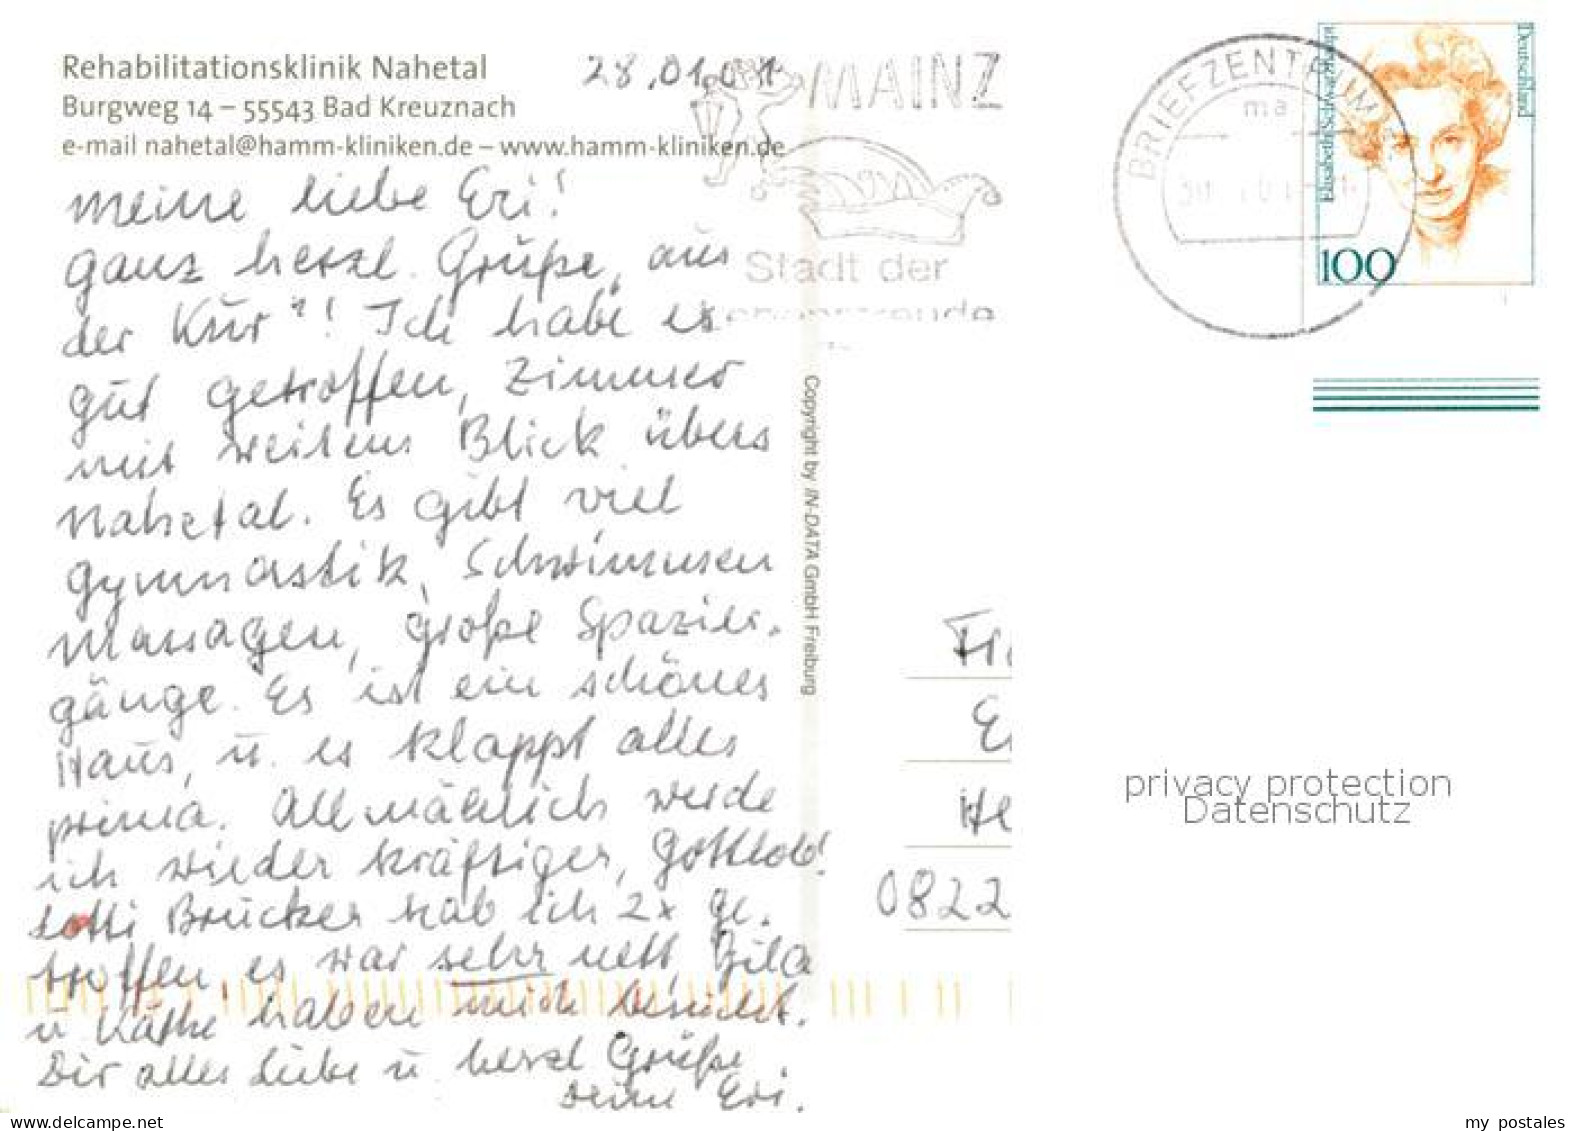 Rehabilitationsklinik Nahetal
Burgweg 14 – 55543 Bad Kreuznach
e-mail nahetal@hamm-kliniken.de – www.hamm-kliniken.de
28.01.01
meine liebe Eri!
ganz herzl. Grüße, aus
der Kur"! Ich habe es
gut getroffen, Zimmer
mit weitem Blick übers
Nahetal. Es gibt viel
Gymnastik, Schwimmen
Massagen, große Spazier-
gänge. Es ist ein schönes
Haus, u. es klappt alles
prima. Allmählich werde
ich wieder kräftiger, Gottlob!
Lotti Brücker hab ich 2x ge-
troffen es war sehr nett, Gila
u Käthe haben mich besucht.
Dir alles Liebe u herzl Grüße
Deine Eri.
Copyright by IN-DATA GmbH Freiburg
MAINZ
Stadt der
BRIEFZENTRUM
ma
Deutschland
Elisabeth Schwarzkopf
100
Fr
Er
He
0822
privacy protection
Datenschutz
www.delcampe.net
my_postales